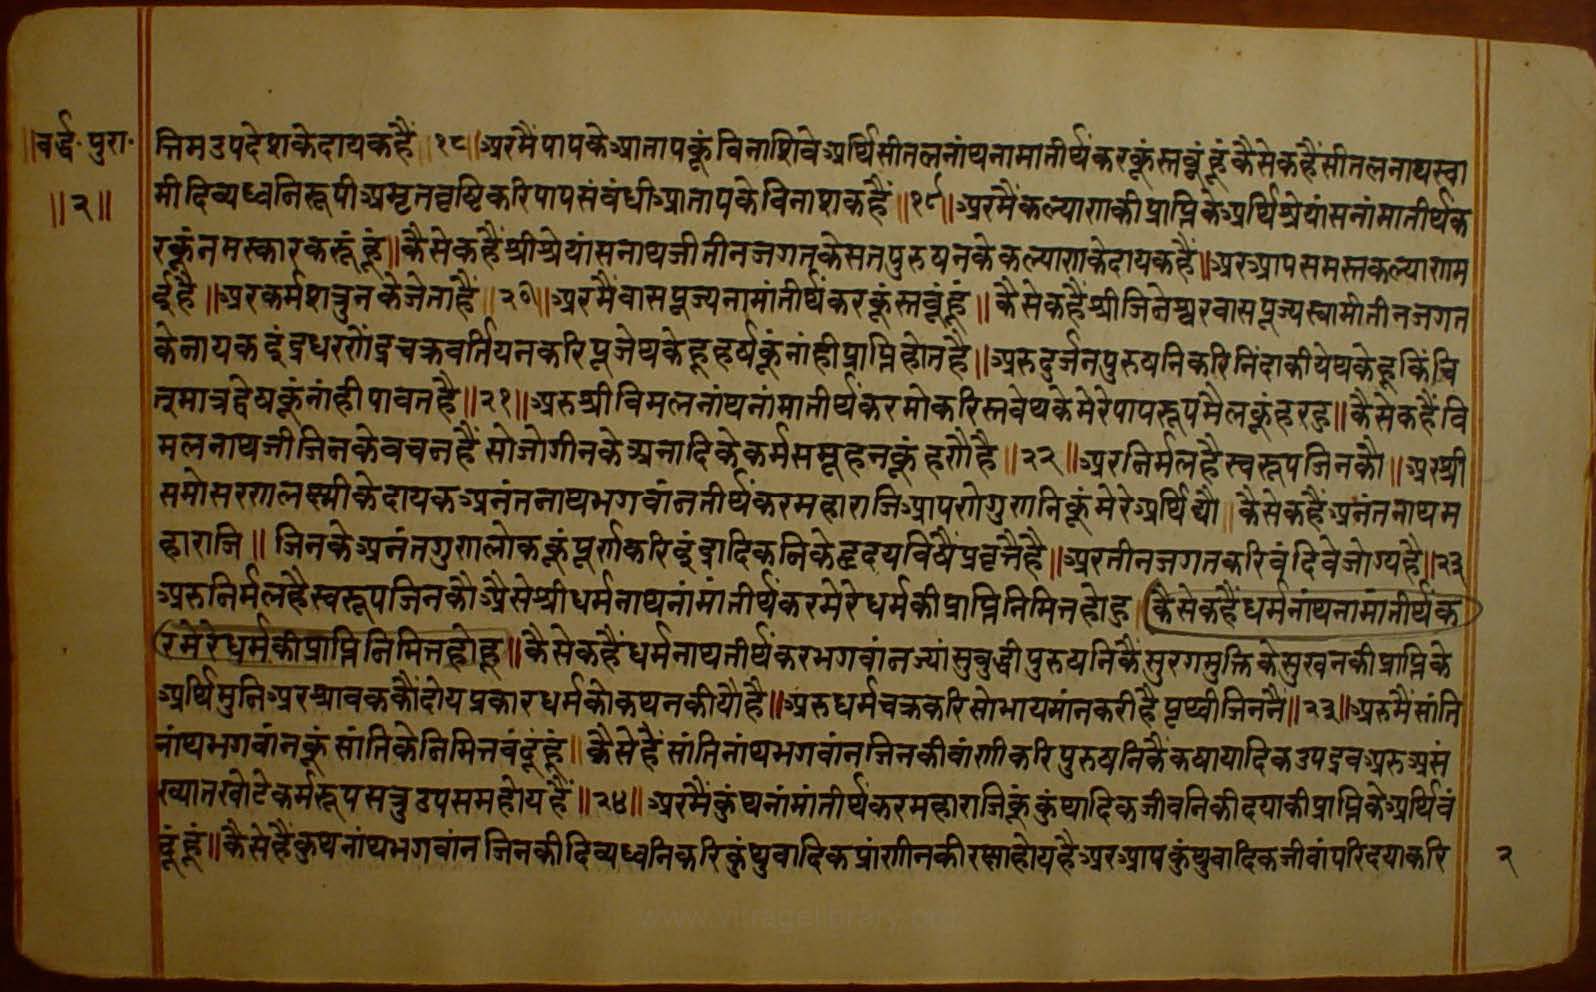 ॥वर्द्ध॰ पुरा॰
॥२॥
त्तिमउपदेशकेदायकहैं॥१८॥अरमैंपापकेआतापकूंविनाशिवेअर्थिसीतलनांथनामातीर्थंकरकूंस्तवूंहूंकैसेकहैंसीतलनाथस्वा
मीदिव्यध्वनिरूपीअमृतवृष्टिकरिपापसंबंधीआतापकेविनाशकहैं॥१९॥अरमैंकल्याणकीप्राप्तिकेअर्थिश्रेयांसनांमातीर्थंक
रकूंनमस्कारकरूंहूं॥कैसेकहैंश्रीश्रेयांसनाथजीतीनजगतकेसतपुरुषनकेकल्याणकेदायकहैं॥अरआपसमस्तकल्याणम
ईहै॥अरकर्मशत्रुनकेजेताहैं॥२०॥अरमैंवासपूज्यनामांतीर्थंकरकूंस्तवूंहूं॥कैसेकहैंश्रीजिनेश्वरवासपूज्यस्वामीतीनजगत
केनायकइंद्रधरणेंद्रचक्रवर्तियनकरिपूजेथकेहूहर्षकूंनांहीप्राप्तिहोतहै॥अरुदुर्जनपुरुषनिकरिनिंदाकीयेथकेहूकिंचि
त्मात्रद्वेषकूंनांहीपावतहै॥२१॥अरुश्रीविमलनांथनांमातीर्थंकरमोकरिस्तवेथकेमेरेपापरूपमैलकूंहरहु॥कैसेकहैंवि
मलनाथजीजिनकेवचनहैंसोजोगीनकेअनादिकेकर्मसमूहनकूंहरौहै॥२२॥अरनिर्मलहैस्वरूपजिनकौ॥अरश्री
समोसरणलक्ष्मीकेदायकअनंतनाथभगवांनतीर्थंकरमहाराजिआपणेगुणनिकूंमेरेअर्थिद्यौ॥कैसेकहैंअनंतनाथम
हाराजि॥जिनकेअनंतगुणलोककूंपूर्णकरिइंद्रादिकनिकेहृदयविषैंप्रवृत्तैहै॥अरतीनजगतकरिवंदिवेजोग्यहै॥२३
अरुनिर्मलहैस्वरूपजिनकौअैसेश्रीधर्मनाथनांमांतीर्थंकरमेरेधर्मकीप्राप्तिनिमित्तहोहु॥कैसेकहैंधर्मनांथनामांतीर्थंक
रमेरेधर्मकीप्राप्तिनिमित्तहोहू॥कैसेकहैंधर्मनाथतीर्थंकरभगवांनज्यांसुबुद्धीपुरुषनिकैंसुरगमुक्तिकेसुखनकीप्राप्तिके
अर्थिमुनिअरश्रावककौंदोयप्रकारधर्मकोकथनकीयौहै॥अरुधर्मचक्रकरिसोभायमांनकरीहैपृथ्वीजिननैं॥२३॥अरुमैंसांति
नांथभगवांनकूंसांतिकेनिमित्तवंदूंहूं॥कैसेहैंसांतिनांथभगवांनजिनकीवांणीकरिपुरुषनिकैंकषायादिकउपद्रवअरुअसं
ख्यातखोटेकर्मरूपसत्रुउपसमहोयहैं॥२४॥अरमैंकुंथनांमांतीर्थंकरमहाराजिकूंकुंथादिकजीवनिकीदयाकीप्राप्तिकेअर्थिवं
दूंहूं॥कैसेहैंकुथनांथभगवांनजिनकीदिव्यध्वनिकरिकुंथुवादिकप्रांणीनकीरक्षाहोयहैअरआपकुंथुवादिकजीवांपरिदयाकरि
२
www.vitragelibrary.org